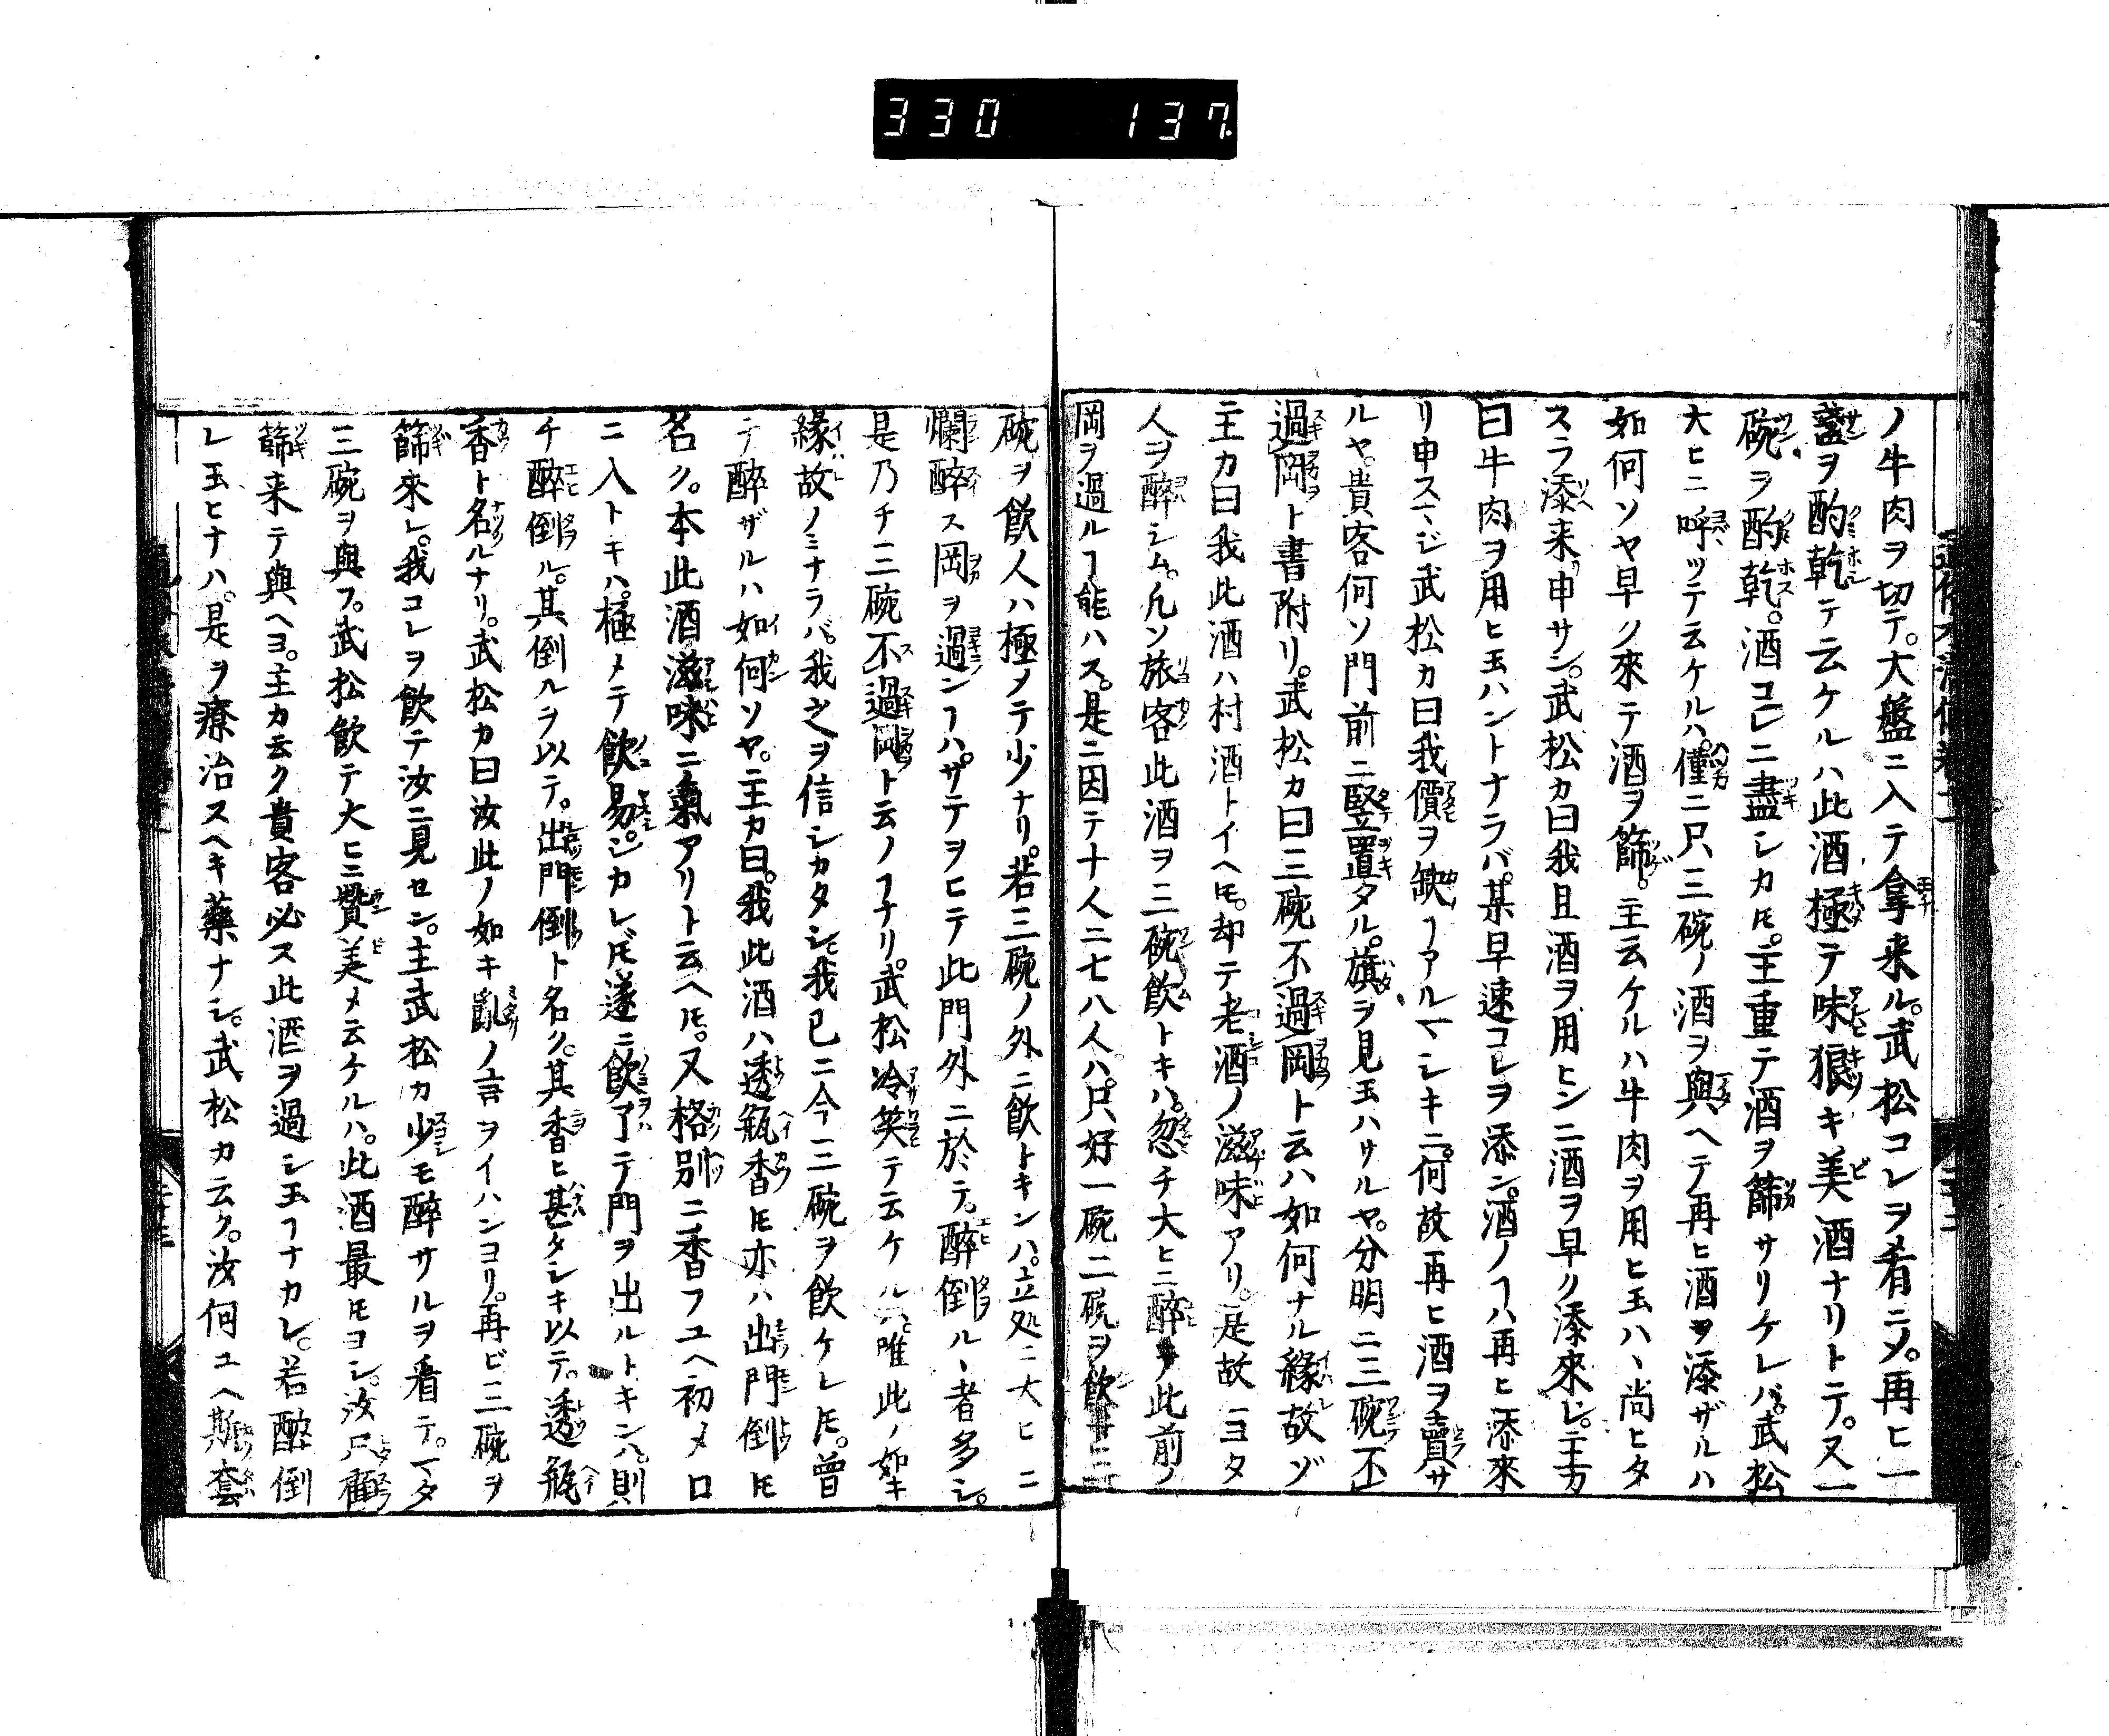 330 137
ノ牛肉ヲ切テ。大盤ニ入テ拿来ル。武松コレヲ肴ニメ。再ヒ一
盞ヲ酌乾テ云ケルハ此酒極テ味狠キ美酒ナリトテ。又一
碗ヲ酌乾。酒コレニ盡シカ𪜈。主重テ酒ヲ篩サリケレバ。武松
大ヒニ呼ツテ云ケルハ。僅ニ只三碗ノ酒ヲ與ヘテ再ヒ酒ヲ添ザルハ
如何ソヤ早ク來テ酒ヲ篩。主云ケルハ牛肉ヲ用ヒ玉ハヽ尚ヒタ
スラ添来申サン。武松カ曰我且酒ヲ用ヒンニ酒ヲ早ク添來レ。主カ
曰牛肉ヲ用ヒ玉ハントナラバ。某早速コレヲ添ン。酒ノヿハ再ヒ添來
リ申スマジ武松カ曰我價ヲ缺ヿアルマシキニ。何故再ヒ酒ヲ賣サ
ルヤ。貴客何ソ門前ニ竪置タル。旗ヲ見玉ハサルヤ。分明ニ三碗不
過岡ト書附リ。武松カ曰三碗不過岡ト云ハ如何ナル縁故ゾ
主カ曰我此酒ハ村酒トイヘ𪜈。却テ老酒ノ滋味アリ。是故ニヨタ
人ヲ醉シム。凡ソ旅客此酒ヲ三碗飲トキハ。忽チ大ヒニ醉テ此前ノ
岡ヲ過ルヿ能ハス。是ニ因テ十人ニ七八人ハ。只好一碗二碗ヲ飲
碗ヲ飲人ハ極メテ少ナリ。若三碗ノ外ニ飲トキンハ。立処ニ大ヒニ
爛醉ス岡ヲ過ンヿハ。サテヲヒテ此門外ニ於テ。醉倒ルヽ者多シ。
是乃チ三碗不過岡ト云ノヿナリ。武松冷笑テ云ケルハ。唯此ノ如キ
縁故ノミナラバ。我之ヲ信シカタシ。我已ニ今三碗ヲ飲ケレ𪜈。曾
テ醉ザルハ如何ソヤ。主カ曰。我此酒ハ透瓶香𪜈亦ハ出門倒𪜈
名ク。本此酒滋味ニ氣アリト云ヘ𪜈。又格別ニ香フユヘ初メ口
ニ入トキハ。極メテ飲易。シカレ𪜈遂ニ飲了テ門ヲ出ルトキンハ。則
チ醉倒ル。其倒ルヲ以テ。出門倒ト名ク。其香ヒ甚タシキ以テ。透瓶
香ト名ルナリ。武松カ曰汝此ノ如キ亂ノ言ヲイハンヨリ。再ビ三碗ヲ
篩來レ。我コレヲ飲テ汝ニ見セン。主武松カ少モ醉サルヲ看テ。マタ
三碗ヲ與フ。武松飲テ大ヒニ贊美メ云ケルハ。此酒最𪜈ヨシ。汝只顧
篩来テ與ヘヨ。主カ云ク貴客必ス此酒ヲ過シ玉フナカレ。若醉倒
レ玉ヒナハ。是ヲ療治スヘキ藥ナシ。武松カ云ク。汝何ユヘ斯套